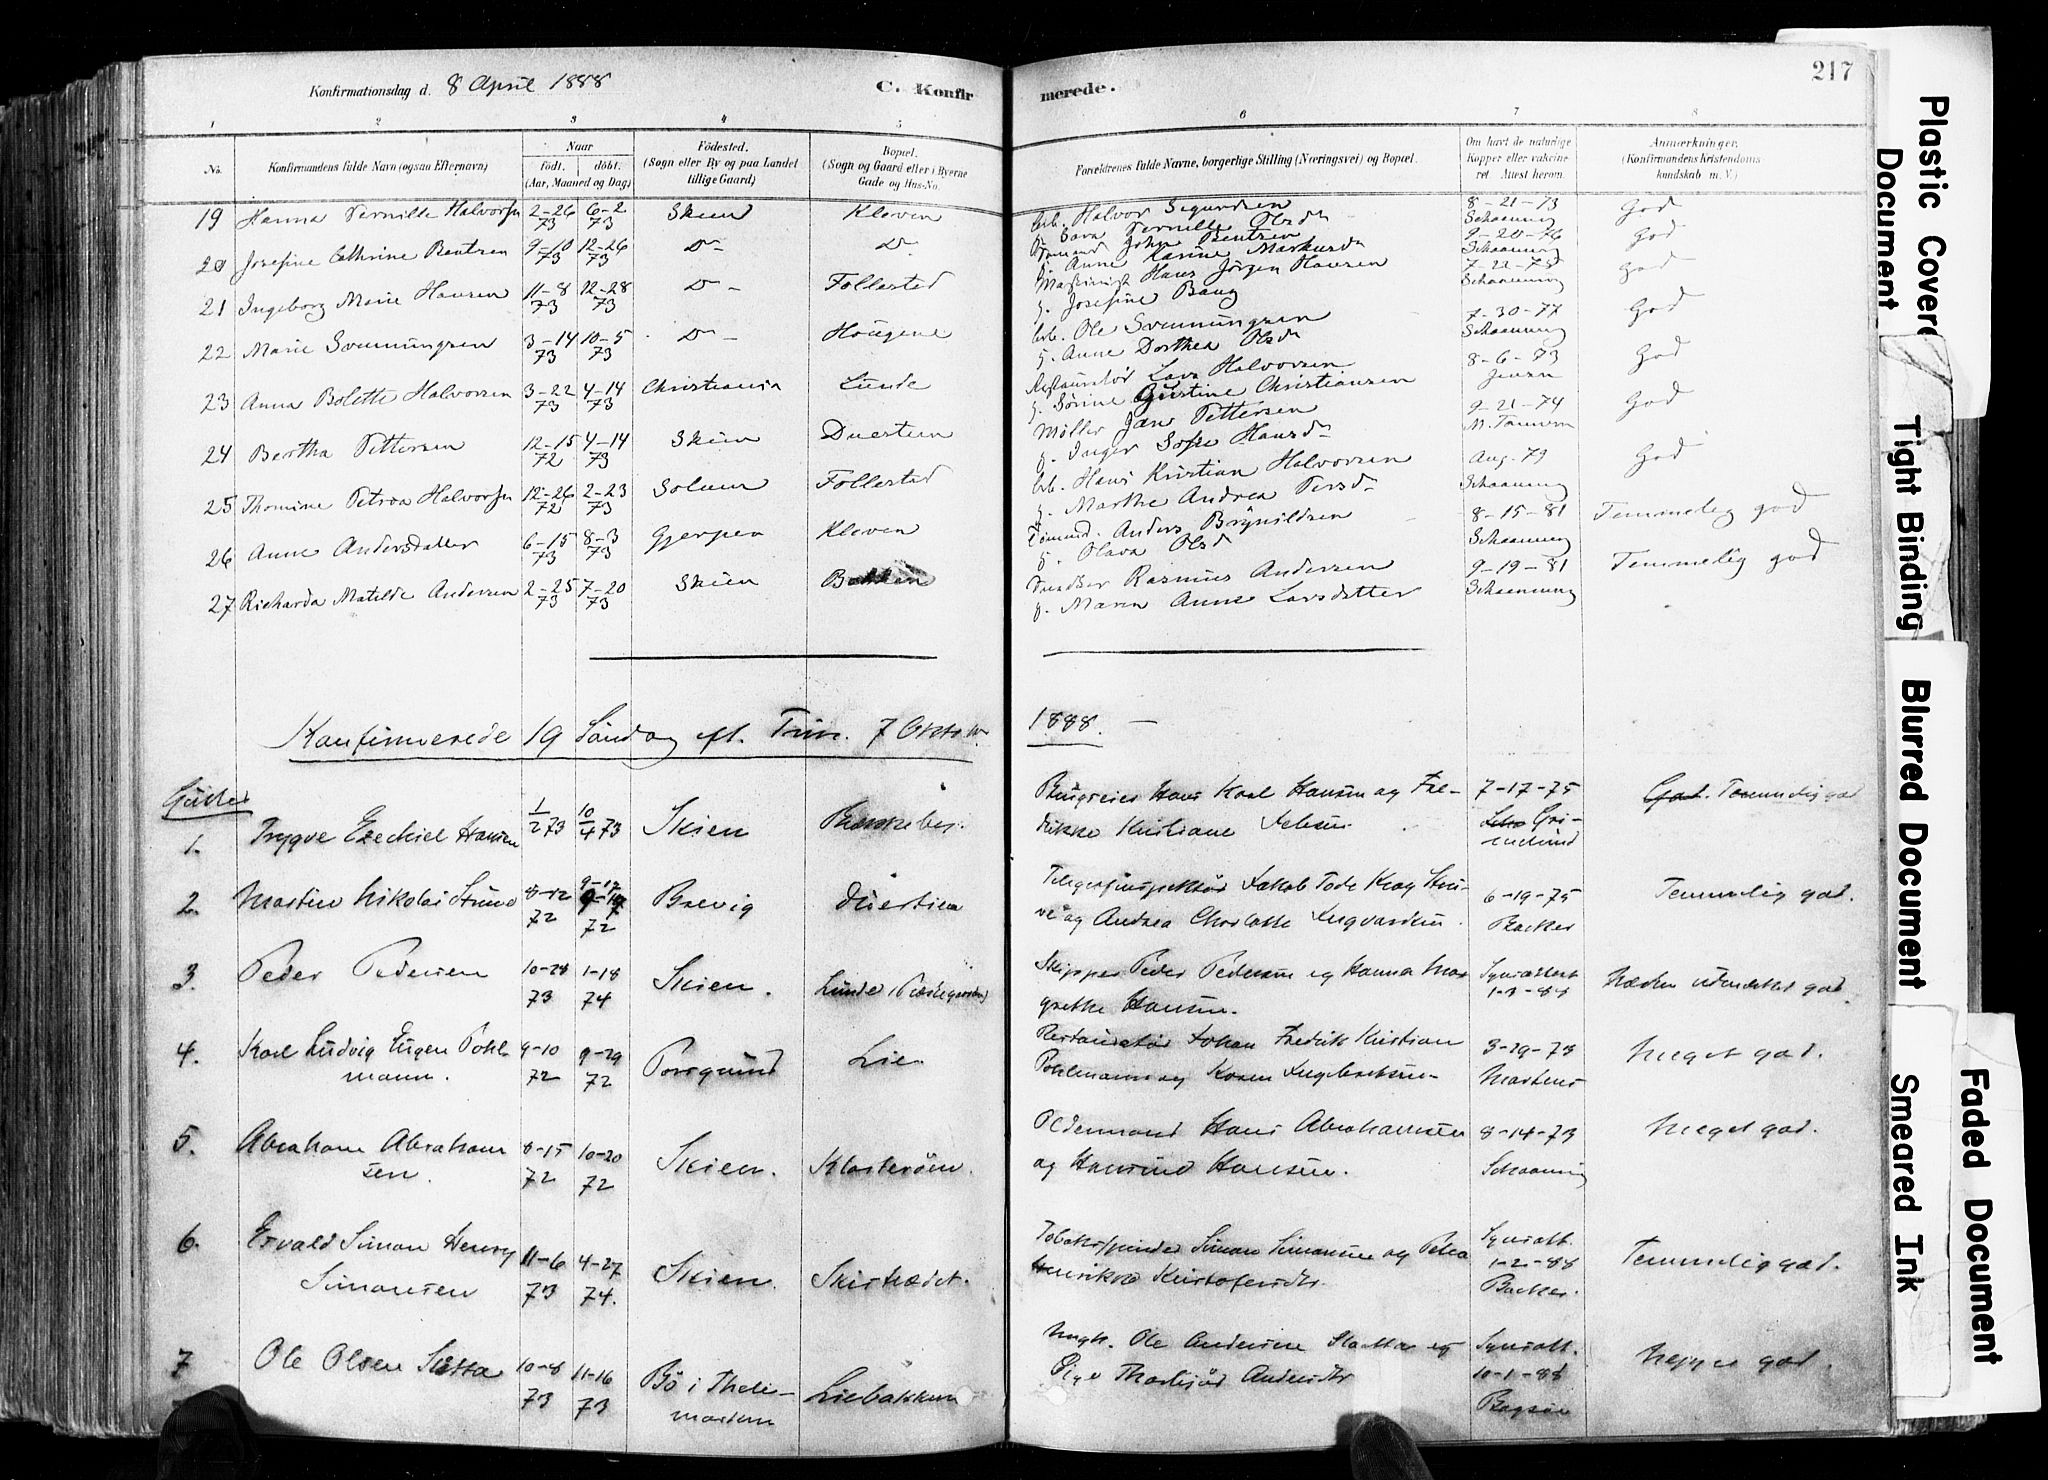 Konfirmationsdag d. 8 April 1888
C. Konfir
merede.
217
1 2 3 4 5 6 7 8
No.
Konfirmandens fulde Navn (ogsaa Efternavn)
Naar
født. døbt.
(Aar, Maaned og Dag)
Fødested.
(Sogn eller By og paa Landet
tillige Gaard)
Bopæl.
(Sogn og Gaard eller i Byerne
Gade og Hus-No.
Forældrenes fulde Navne, borgerlige Stilling (Næringsvei) og Bopæl.
Om havt de naturlige
Kopper eller vaccine-
ret. Attest herom.
Anmærkninger.
(Konfirmandens Kristendoms-
kundskab m. V.)
19 Hanna Pernille Halvorsen 2-26 73 6-2 73 Skien Kleven
Arb. Halvor Segundsen 8-21-73 God
g. Sara Pernille Olsdr Schaanning
20 Josefine Cathrine Bentzen 9-10 73 12-26 73 Do Do
Tømmand John Bentzen 9-20-76 God
g. Anne Karine Markusdr Schaanning
21 Ingeborg Marie Hansen 11-8 73 12-28 73 Do Follestad
Maskinist Hans Jørgen Hansen 7-22-75 God
g. Josefine Bang Schaanning
22 Marie Svenningsen 3-14 73 10-5 73 Do Hougene
Arb. Ole Svenningsen 7-30-77 God
g. Anne Dorthea Olsdr Schaanning
23 Anna Bolette Halvorsen 3-22 73 4-14 73 Christiania Lunde
Restauratør Lars Halvorsen 8-6-73 God
g. Sørine Gustine Christiansen Jensen
24 Bertha Pettersen 12-15 72 4-14 73 Skien Duestien
Møller Jan Pettersen 9-21-74 God
g. Inger Sofie Hansdr
25 Thomine Petrea Halvorsen 12-26 72 2-23 73 Solum Follestad
Arb. Hans Kristian Halvorsen Aug. 79 God
g. Marthe Andrea Persdr Schaanning
26 Anne Andersdatter 6-15 73 8-3 73 Gjerpen Kleven
Tømmd. Anders Brynildsen 8-15-81 Temmelig god
g. Olava Olsd Schaanning
27 Richarda Matilde Andersen 2-25 73 7-20 73 Skien Bakken
Snedker Rasmus Andersen 9-19-81 Temmelig god
g. Maren Anne Larsdatter Schaanning
Konfirmerede 19 Søndag eft. Trin. 7 Oktober
1888. —
Gutter
1. Trygve Ezechiel Hansen 1/2 73 10/4 73 Skien
Hans Karl Hansen og Fre- 7-17-75 God. Temmelig god
dikke Kristiane Jebsen
2. Martin Nikolai Struve 8-12 72 9-17 72 Brevig Duestien
Telegrafinspektør Jakob Tode Krag Stru- 6-19-75 Temmelig god.
ve og Andrea Charlotte Ingvardsen Backer
3. Peder Pedersen 10-28 73 1-18 74 Skien. Lunde
Skipper Peder Pedersen og Hanna Mar Synsattest Næsten udmærket god.
grethe Hansen. 1-3-88
4. Karl Ludvig Eugen Pohl 9-10 72 9-29 72 Porsgrund Lie
mann.
Restauratør Johan Fredrik Kristian 3-29-73 Meget god.
Pohlmann og Karen Ingebretsen Martens
5. Abraham Abraham 8-15 72 10-20 72 Skien. Klosterøen.
sen.
Oldermand Hans Abrahamsen 8-14-73 Meget god.
og Hansine Hansen. Schaanning
6. Edvald Simon Henry 11-6 73 4-27 74. Skien. Skistrædet.
Simonsen
Tobaksspinder Simon Simonsen og Petra Synsatt. Temmelig god.
Henrikke Kristofersdtr. 1-2-88
Backer.
7 Ole Olsen Slaatta 10-8 73 11-16 73 Bø i Thele- Liebakken
marken
Ungk. Ole Andersen Slaatta og Synsatt. Neppe god.
Pige Thorbjør Andersdtr 10-1-88
Plastic Covered Document
Tight Binding
Blurred Document
Faded Document
Smeared Ink